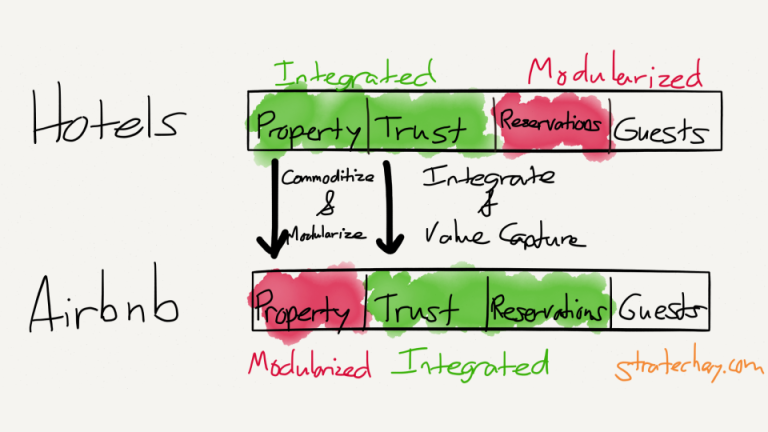 Integrated Modularized
Hotels
Property Trust Reservations Guests
Commoditize
&
Modularize
Integrate
&
Value Capture
Airbnb
Property Trust Reservations Guests
Modularized Integrated
stratechery.com